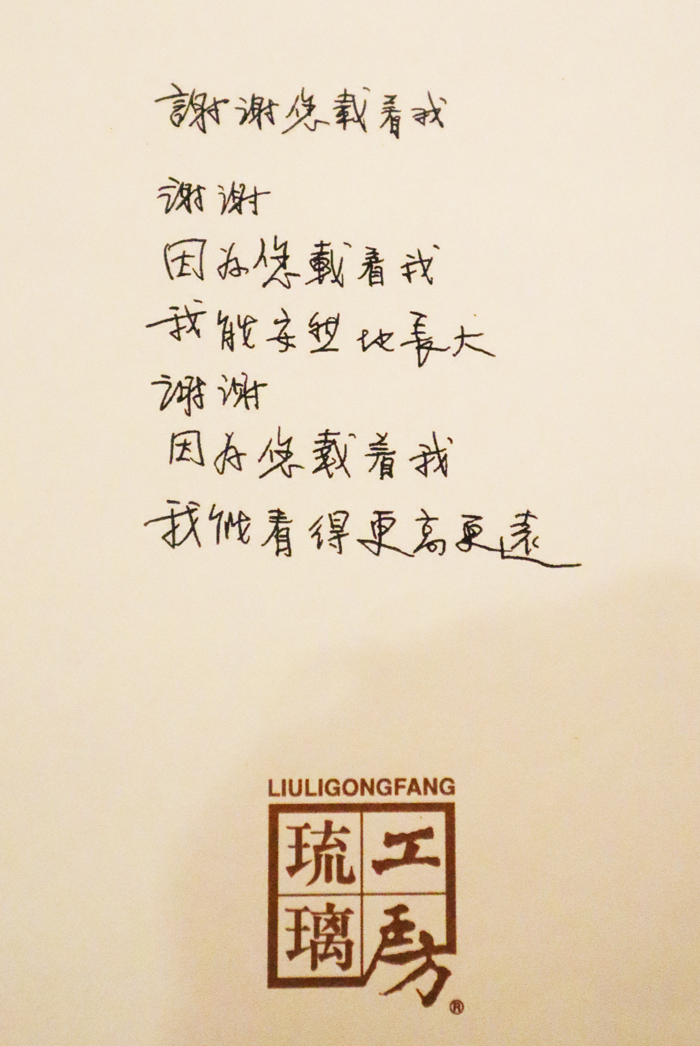 謝謝您載着我
謝謝
因为您載着我
我能安然地長大
謝謝
因为您載着我
我能看得更高更遠
LIULIGONGFANG
琉璃工房
®